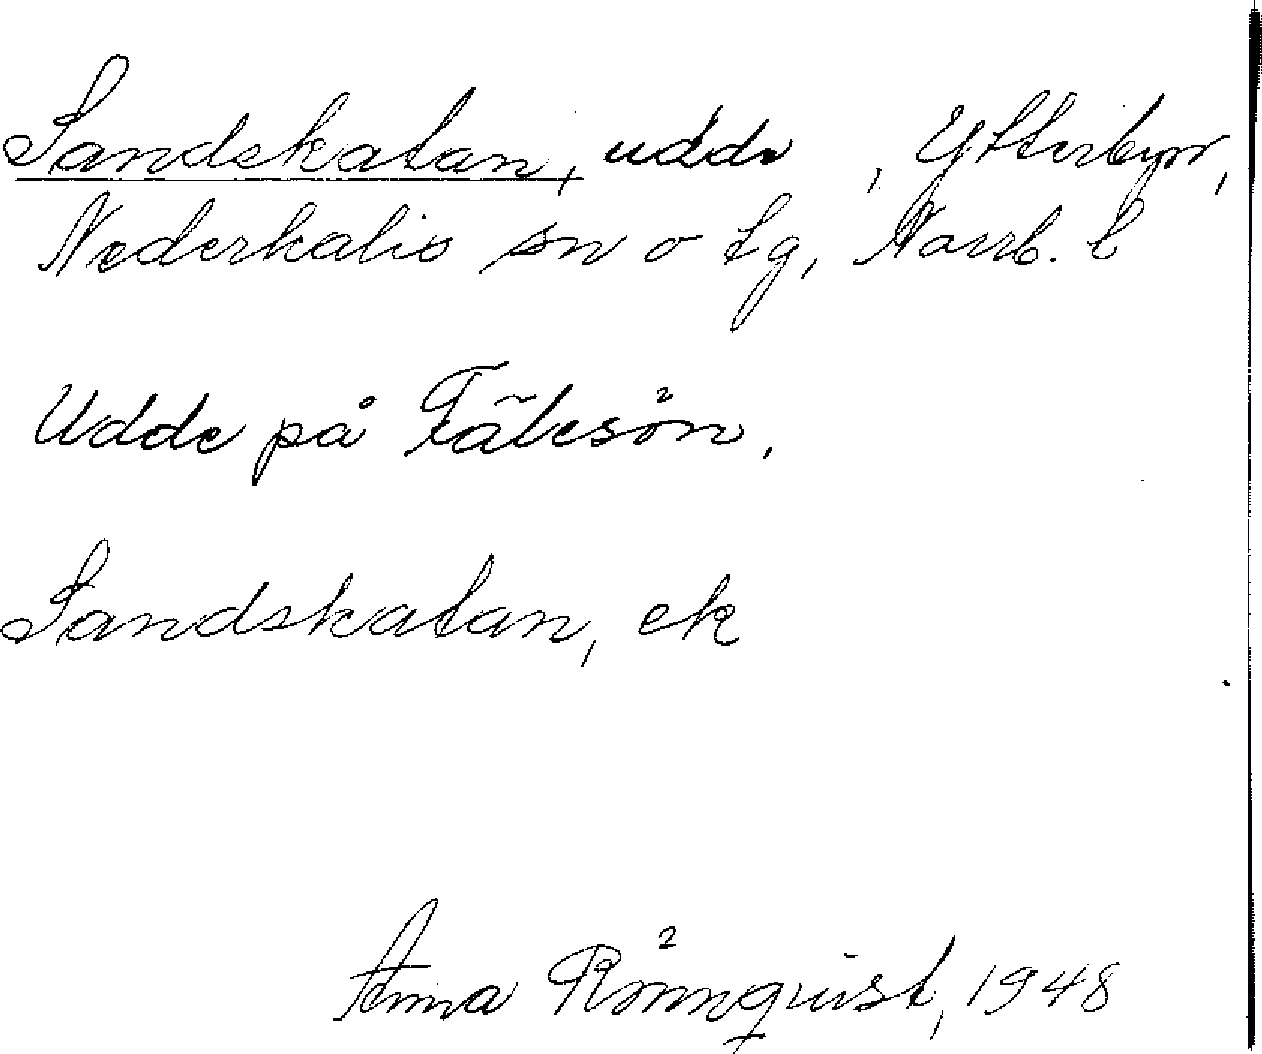 Sandskatan, udde, Ytterbyn,
Nederkalix sn o tg, Norrb. l
Udde på Fåtesön.
Sandskatan, ck
Anna Rönnquist, 1948